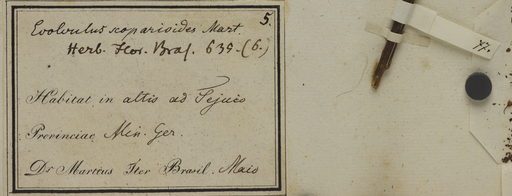 5.
Evolvulus scoparioides Mart.
Herb. Flor. Bras. 639. (6.)
Habitat in altis ad Tejuco
Provinciae Min. Ger.
Dr Martius Iter Brasil. Maio